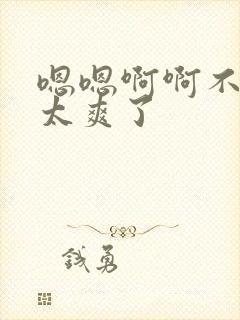 嗯嗯啊啊不
太爽了
钱勇